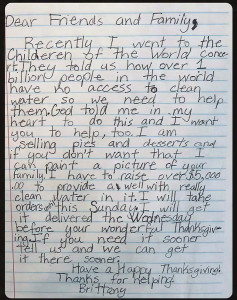 Dear Friends and Family,
Recently I went to the
Children of the World concer-
t. They told us how over 1
billion people in the world
have no access to clean
water so we need to help
them. God told me in my
heart to do this and I want
you to help, too. I am
selling pies and desserts and
if you don't want that I
can paint a picture of your
family. I have to raise over $5,000
.00 to provide a well with really
clean water in it. I will take
orders on this Sunday. I will get
it delivered the Wednesday
before your wonderful Thanksgiv-
ing. If you need it sooner
tell us and we can get
it there sooner.
Have a Happy Thanksgiving!
Thanks for helping!
Brittony